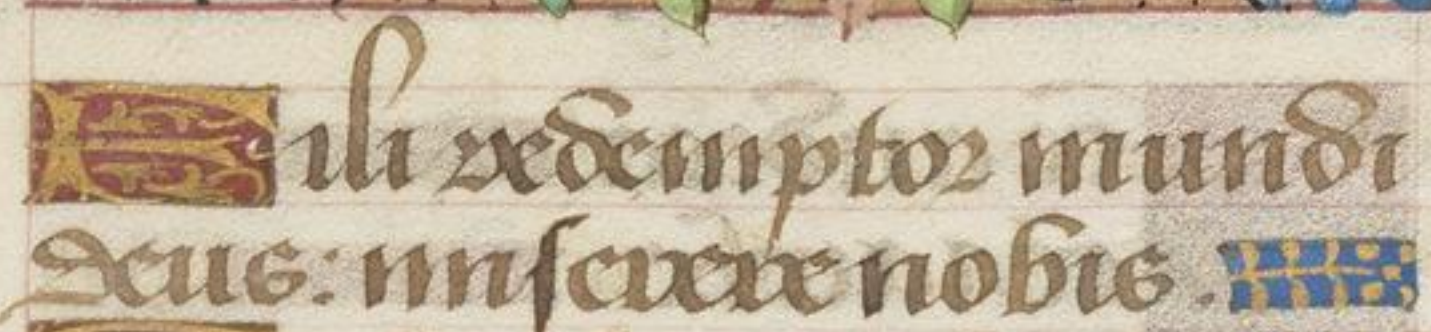 Fili redemptor mundi
deus: miserere nobis.